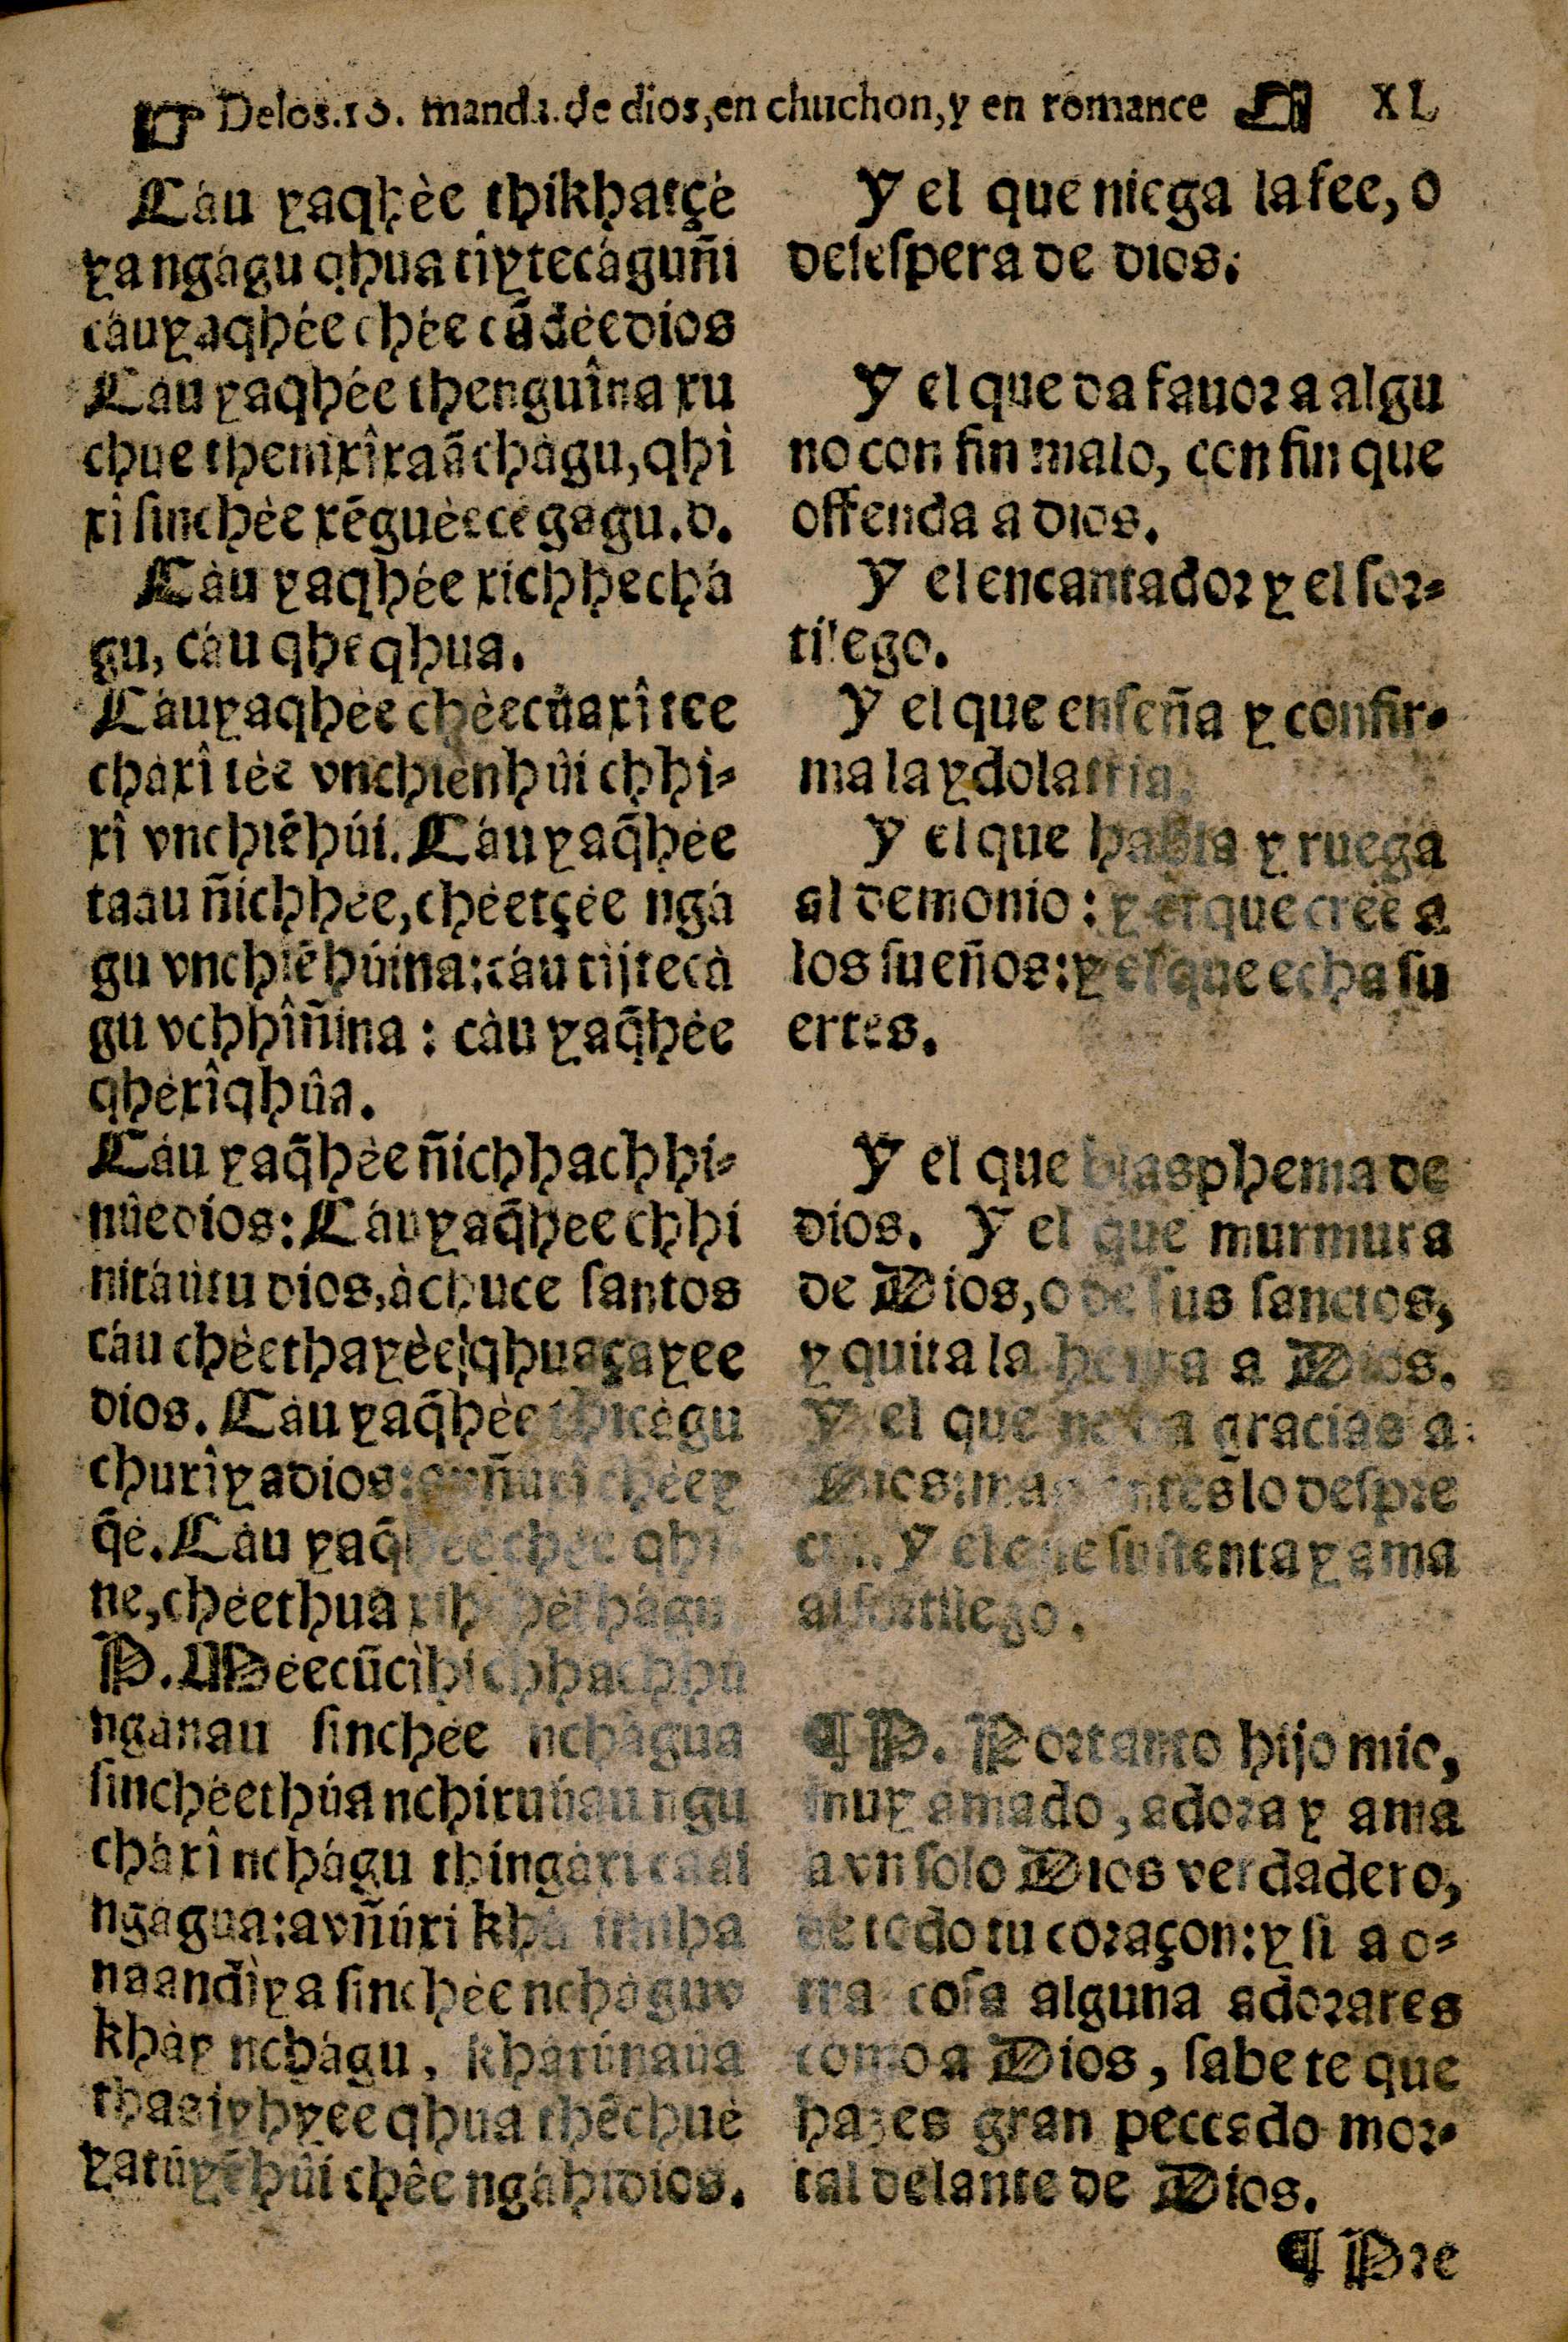 ☞ Delos.10. manda.de dios,en chuchon,y en romance XL
Càu yaqhèe thikhatçè
yangàgu qhua tiytecàguñi
càuyaqhée chée cũdèedios
Càu yaqhée thenguîna xu
chue themixîxaãchàgu,qhì
xî sinchèe xẽguèece gagu.d.
Càu yaqhée xichhechá
gu, càu qheqhua.
Càuyaqhèe chèecũaxî tee
chàxî tèe vnchiènhûi chhi-
xî vnchiẽhúi. Càu yaq̃hèe
taau ñichhèe,chéetçèe ngá
gu vnchiẽhúina:càu tijtecà
gu vchhîñina : càu yaq̃hèe
qhèxîqhûa.
Càu yaq̃hèe ñichhachhi-
nûedios: Càuyaq̃hee chhi
nitáutu dios,àchuce santos
càu chèethayèe qhuaçayee
dios. Càu yaq̃hèe thicègu
churîyadios: chéey
q̃è. Càu qhi
ne,chéethua
P. Deecũcì
nganau sinchée nchàgua
sinchéethúa nchiruúau ngu
chàxî nchàgu thingàxi
ngagua:avñúxi
naandìya sinchée nchàguv
khày nchàgu, khàtúnaúa
thagiyhyee qhua thẽchuè
yatúyẽhûi chêe ngàhidios.
Y el que niega lafee, o
deſeſpera de dios.
Y el que da fauor a algu
no con fin malo, con fin que
offenda a dios.
Y el encantador y el ſor-
tilego.
Y el que enſeña y confir-
ma la ydolatria.
Y el que habla y ruega
al demonio : y el que cree a
los ſueños:y el que echa ſu
ertes.
Y el que blasphema de
dios. Y el que murmura
de Dios,o de ſus ſanctos,
y quita la honra a Dios.
Y el que no da gracias a
Dios:mas antes lo deſpre
cia. Y el que ſuſtenta y ama
al ſortilego.
¶ P. Portanto hijo mio,
muy amado, adora y ama
a vn ſolo Dios verdadero,
de todo tu coraçon:y ſi a o-
tra coſa alguna adorares
como a Dios, ſabe te que
hazes gran peccado mor-
tal delante de Dios.
¶ Pre